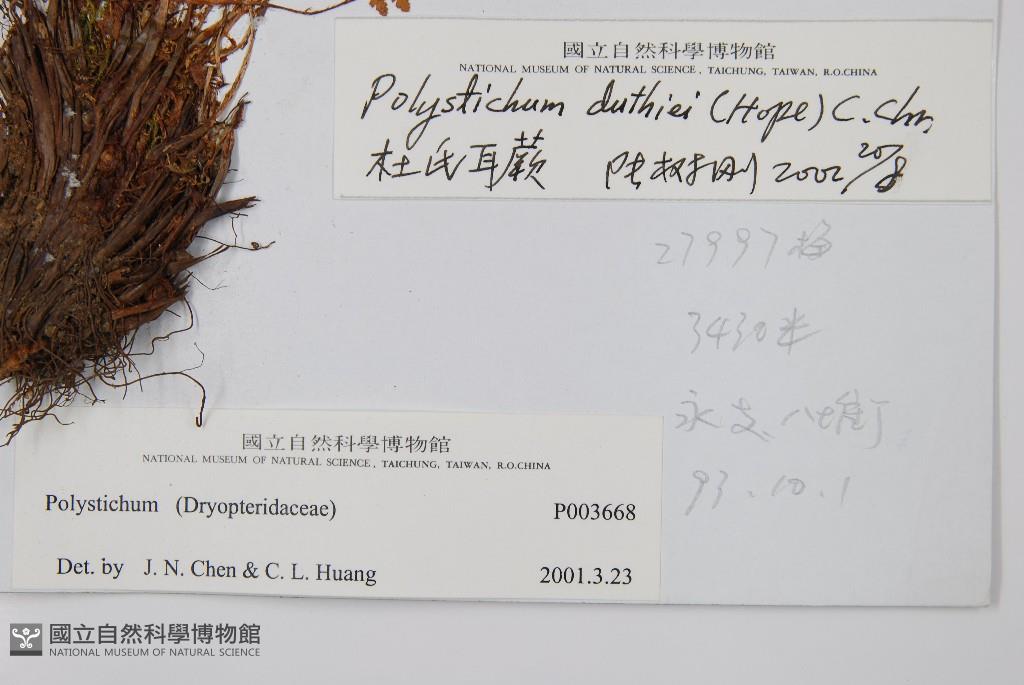 國立自然科學博物館
NATIONAL MUSEUM OF NATURAL SCIENCE, TAICHUNG, TAIWAN, R.O.CHINA
Polystichum duthiei (Hope) C. Chr.
杜氏耳蕨 陸树刚 2002 20/8
27997
3430米
93.10.1
國立自然科學博物館
NATIONAL MUSEUM OF NATURAL SCIENCE, TAICHUNG, TAIWAN, R.O.CHINA
Polystichum (Dryopteridaceae) P003668
Det. by J. N. Chen & C. L. Huang 2001.3.23
國立自然科學博物館
NATIONAL MUSEUM OF NATURAL SCIENCE